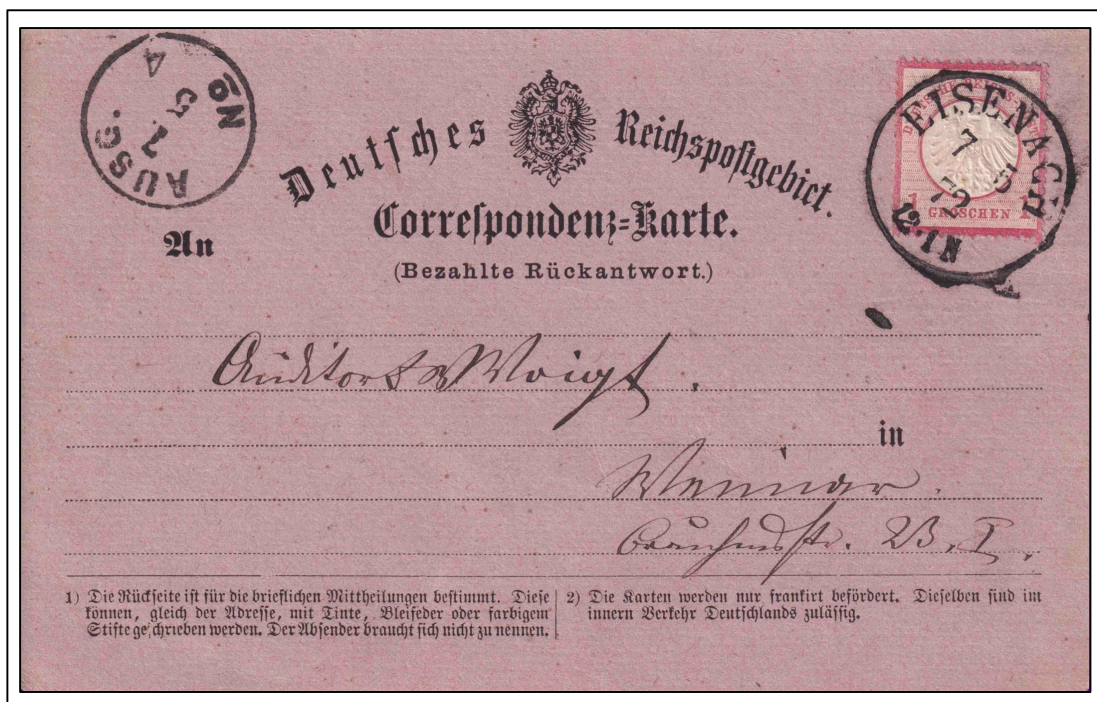 AUSG.
7 5
4
No
Deutsches Reichspostgebiet.
Correspondenz=Karte.
(Bezahlte Rückantwort.)
EISENACH
7 5
72
12-1 N
1 GROSCHEN 1
An
Auditor Voigt.
in
Weimar.
1) Die Rückseite ist für die brieflichen Mittheilungen bestimmt. Diese
können, gleich der Adresse, mit Tinte, Bleifeder oder farbigem
Stifte geschrieben werden. Der Absender braucht sich nicht zu nennen.
2) Die Karten werden nur frankirt befördert. Dieselben sind im
innern Verkehr Deutschlands zulässig.